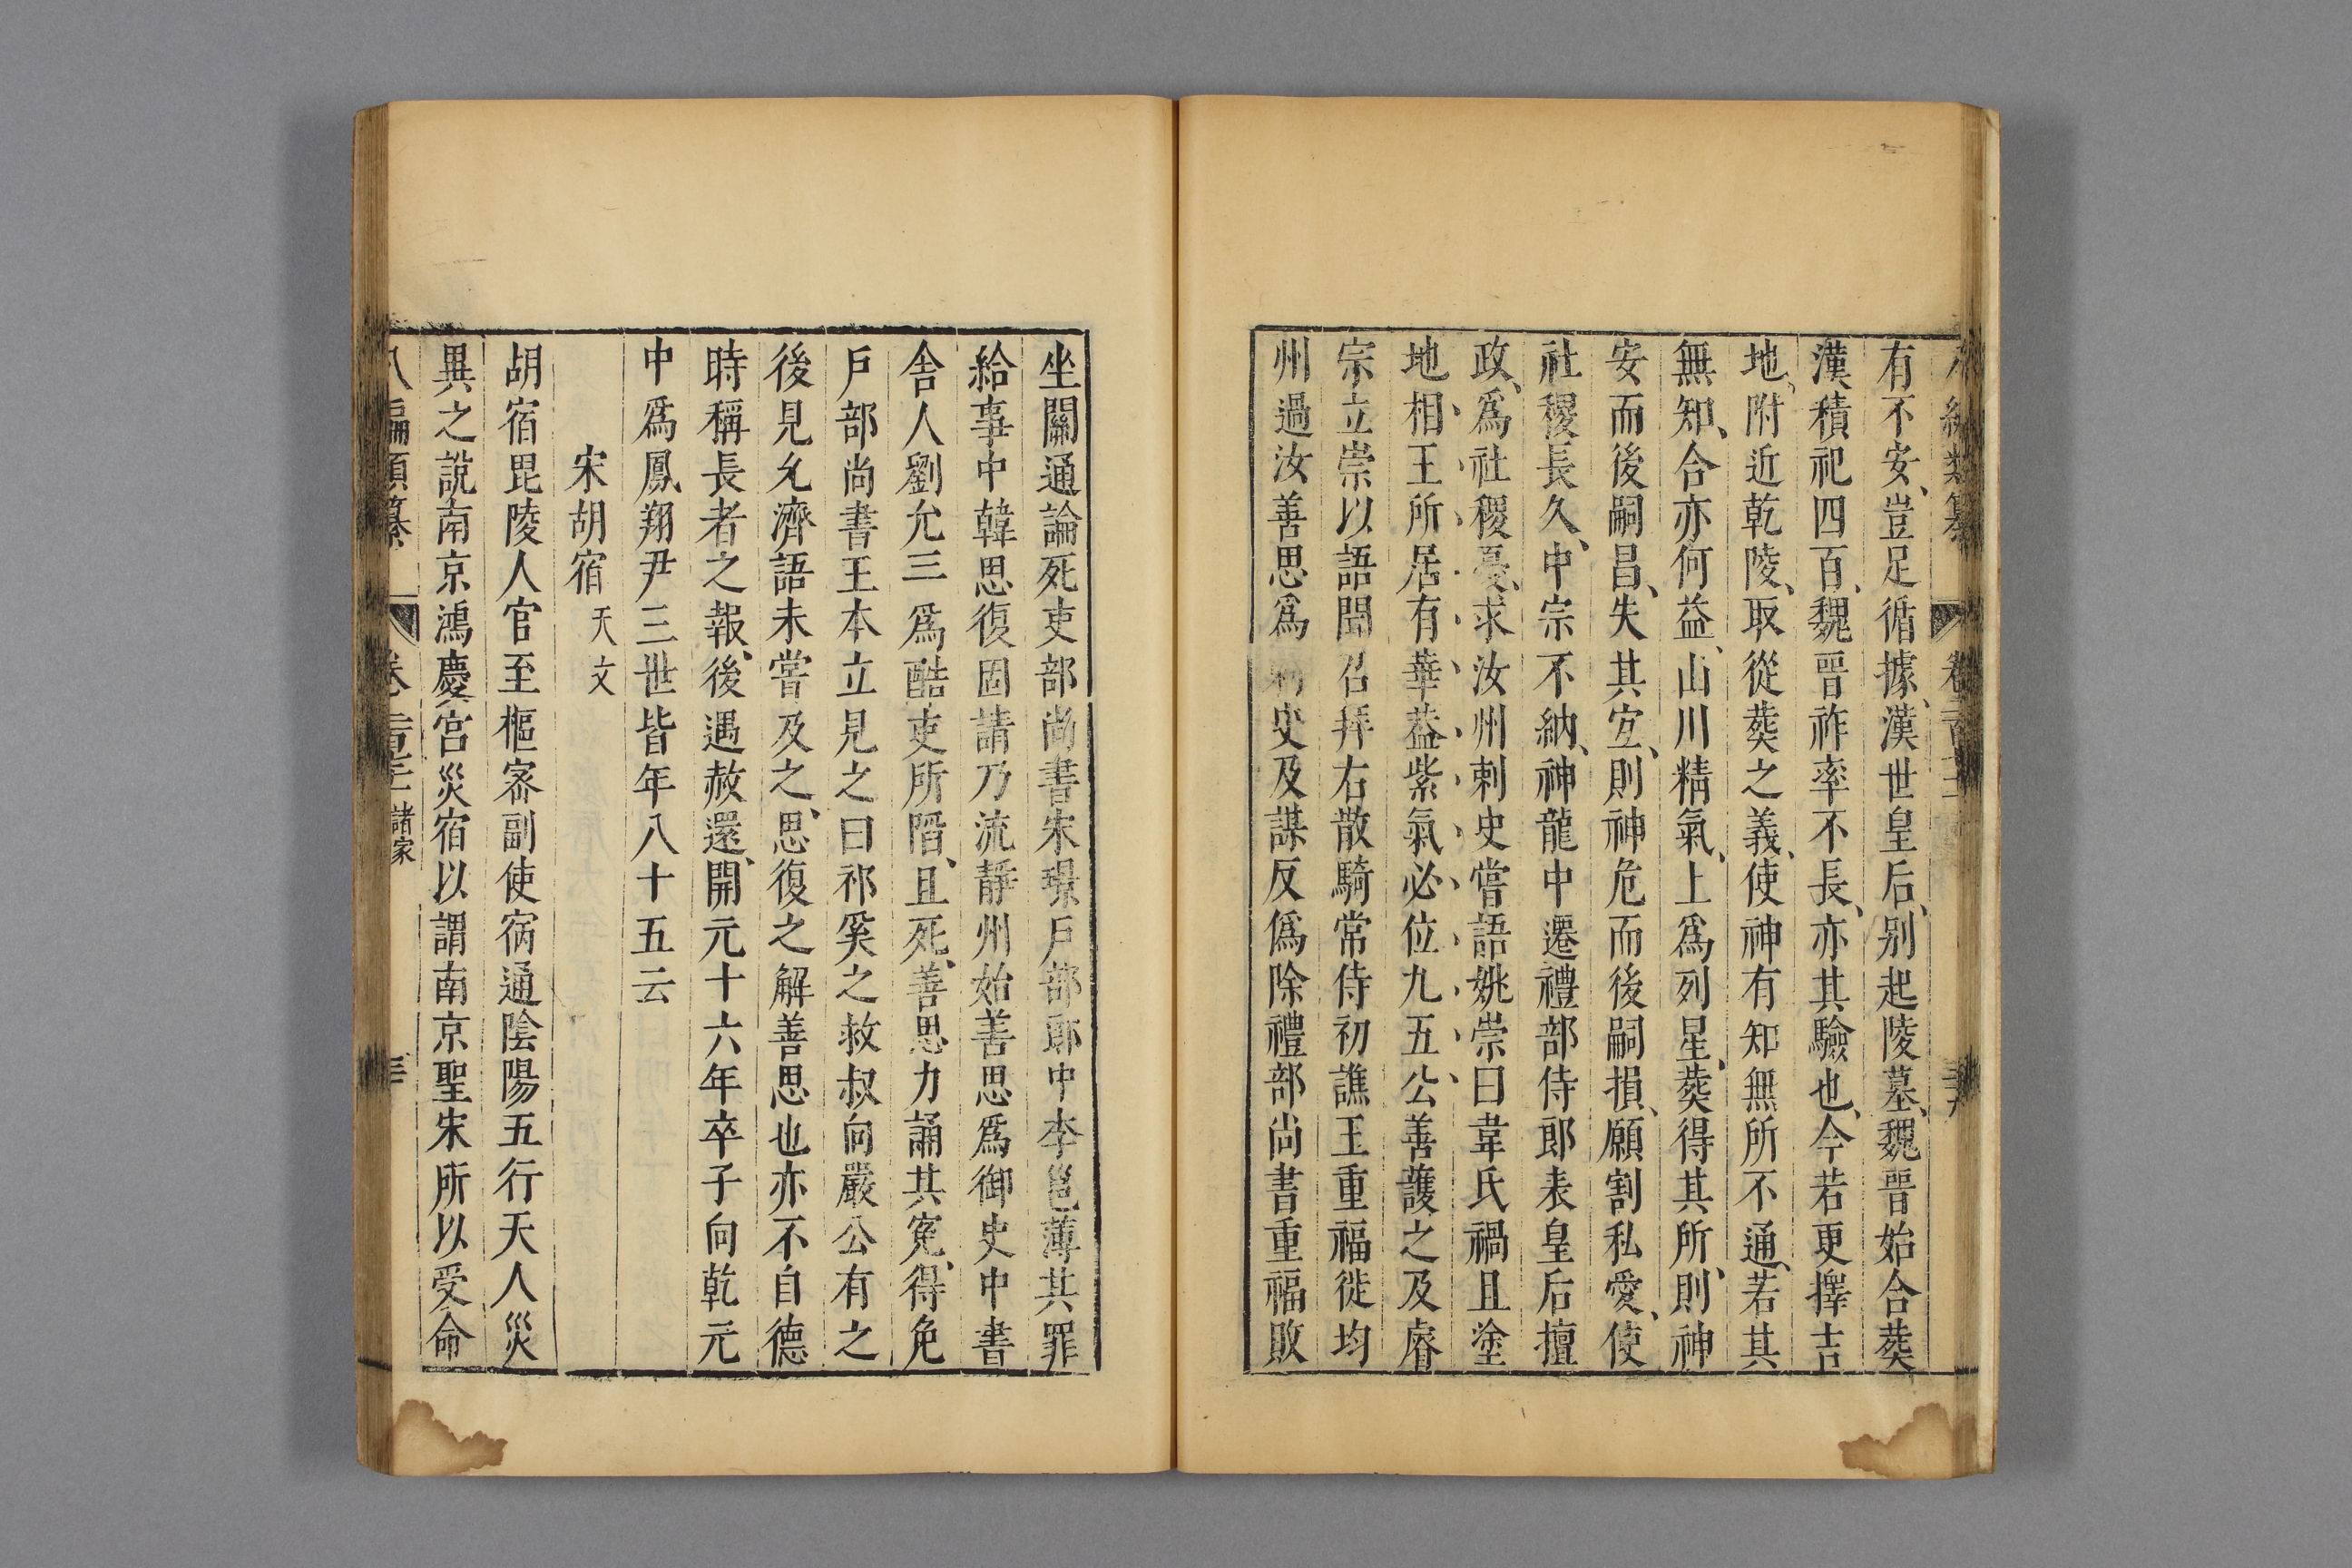 有不安豈足循據漢世皇后別起陵墓魏晉始合葬
漢積祀四百魏晉祚率不長亦其驗也今若更擇吉
地附近乾陵取從葬之義使神有知無所不通若其
無知合亦何益山川精氣上爲列星葬得其所則神
安而後嗣昌失其宜則神危而後嗣損願割私愛使
社稷長久中宗不納神龍中遷禮部侍郎表皇后擅
政爲社稷憂求汝州刺史嘗語姚崇曰韋氏禍且塗
地相王所居有華葢紫氣必位九五公善護之及睿
宗立崇以語聞召拜右散騎常侍初譙王重福徙均
州過汝善思爲刺史及謀反僞除禮部尚書重福敗
坐關通論死吏部尚書宋璟戶部郎中李邕薄其罪
給事中韓思復固請乃流靜州始善思爲御史中書
舍人劉允三爲酷吏所陷且死善思力誦其寃得免
戶部尚書王本立見之曰祁奚之救叔向嚴公有之
後見允濟語未嘗及之思復之解善思也亦不自德
時稱長者之報後遇赦還開元十六年卒子向乾元
中爲鳳翔尹三世皆年八十五云
宋胡宿 天文
胡宿毘陵人官至樞密副使宿通陰陽五行天人災
異之說南京鴻慶宮災宿以謂南京聖宋所以受命
八編類纂 卷 諸家